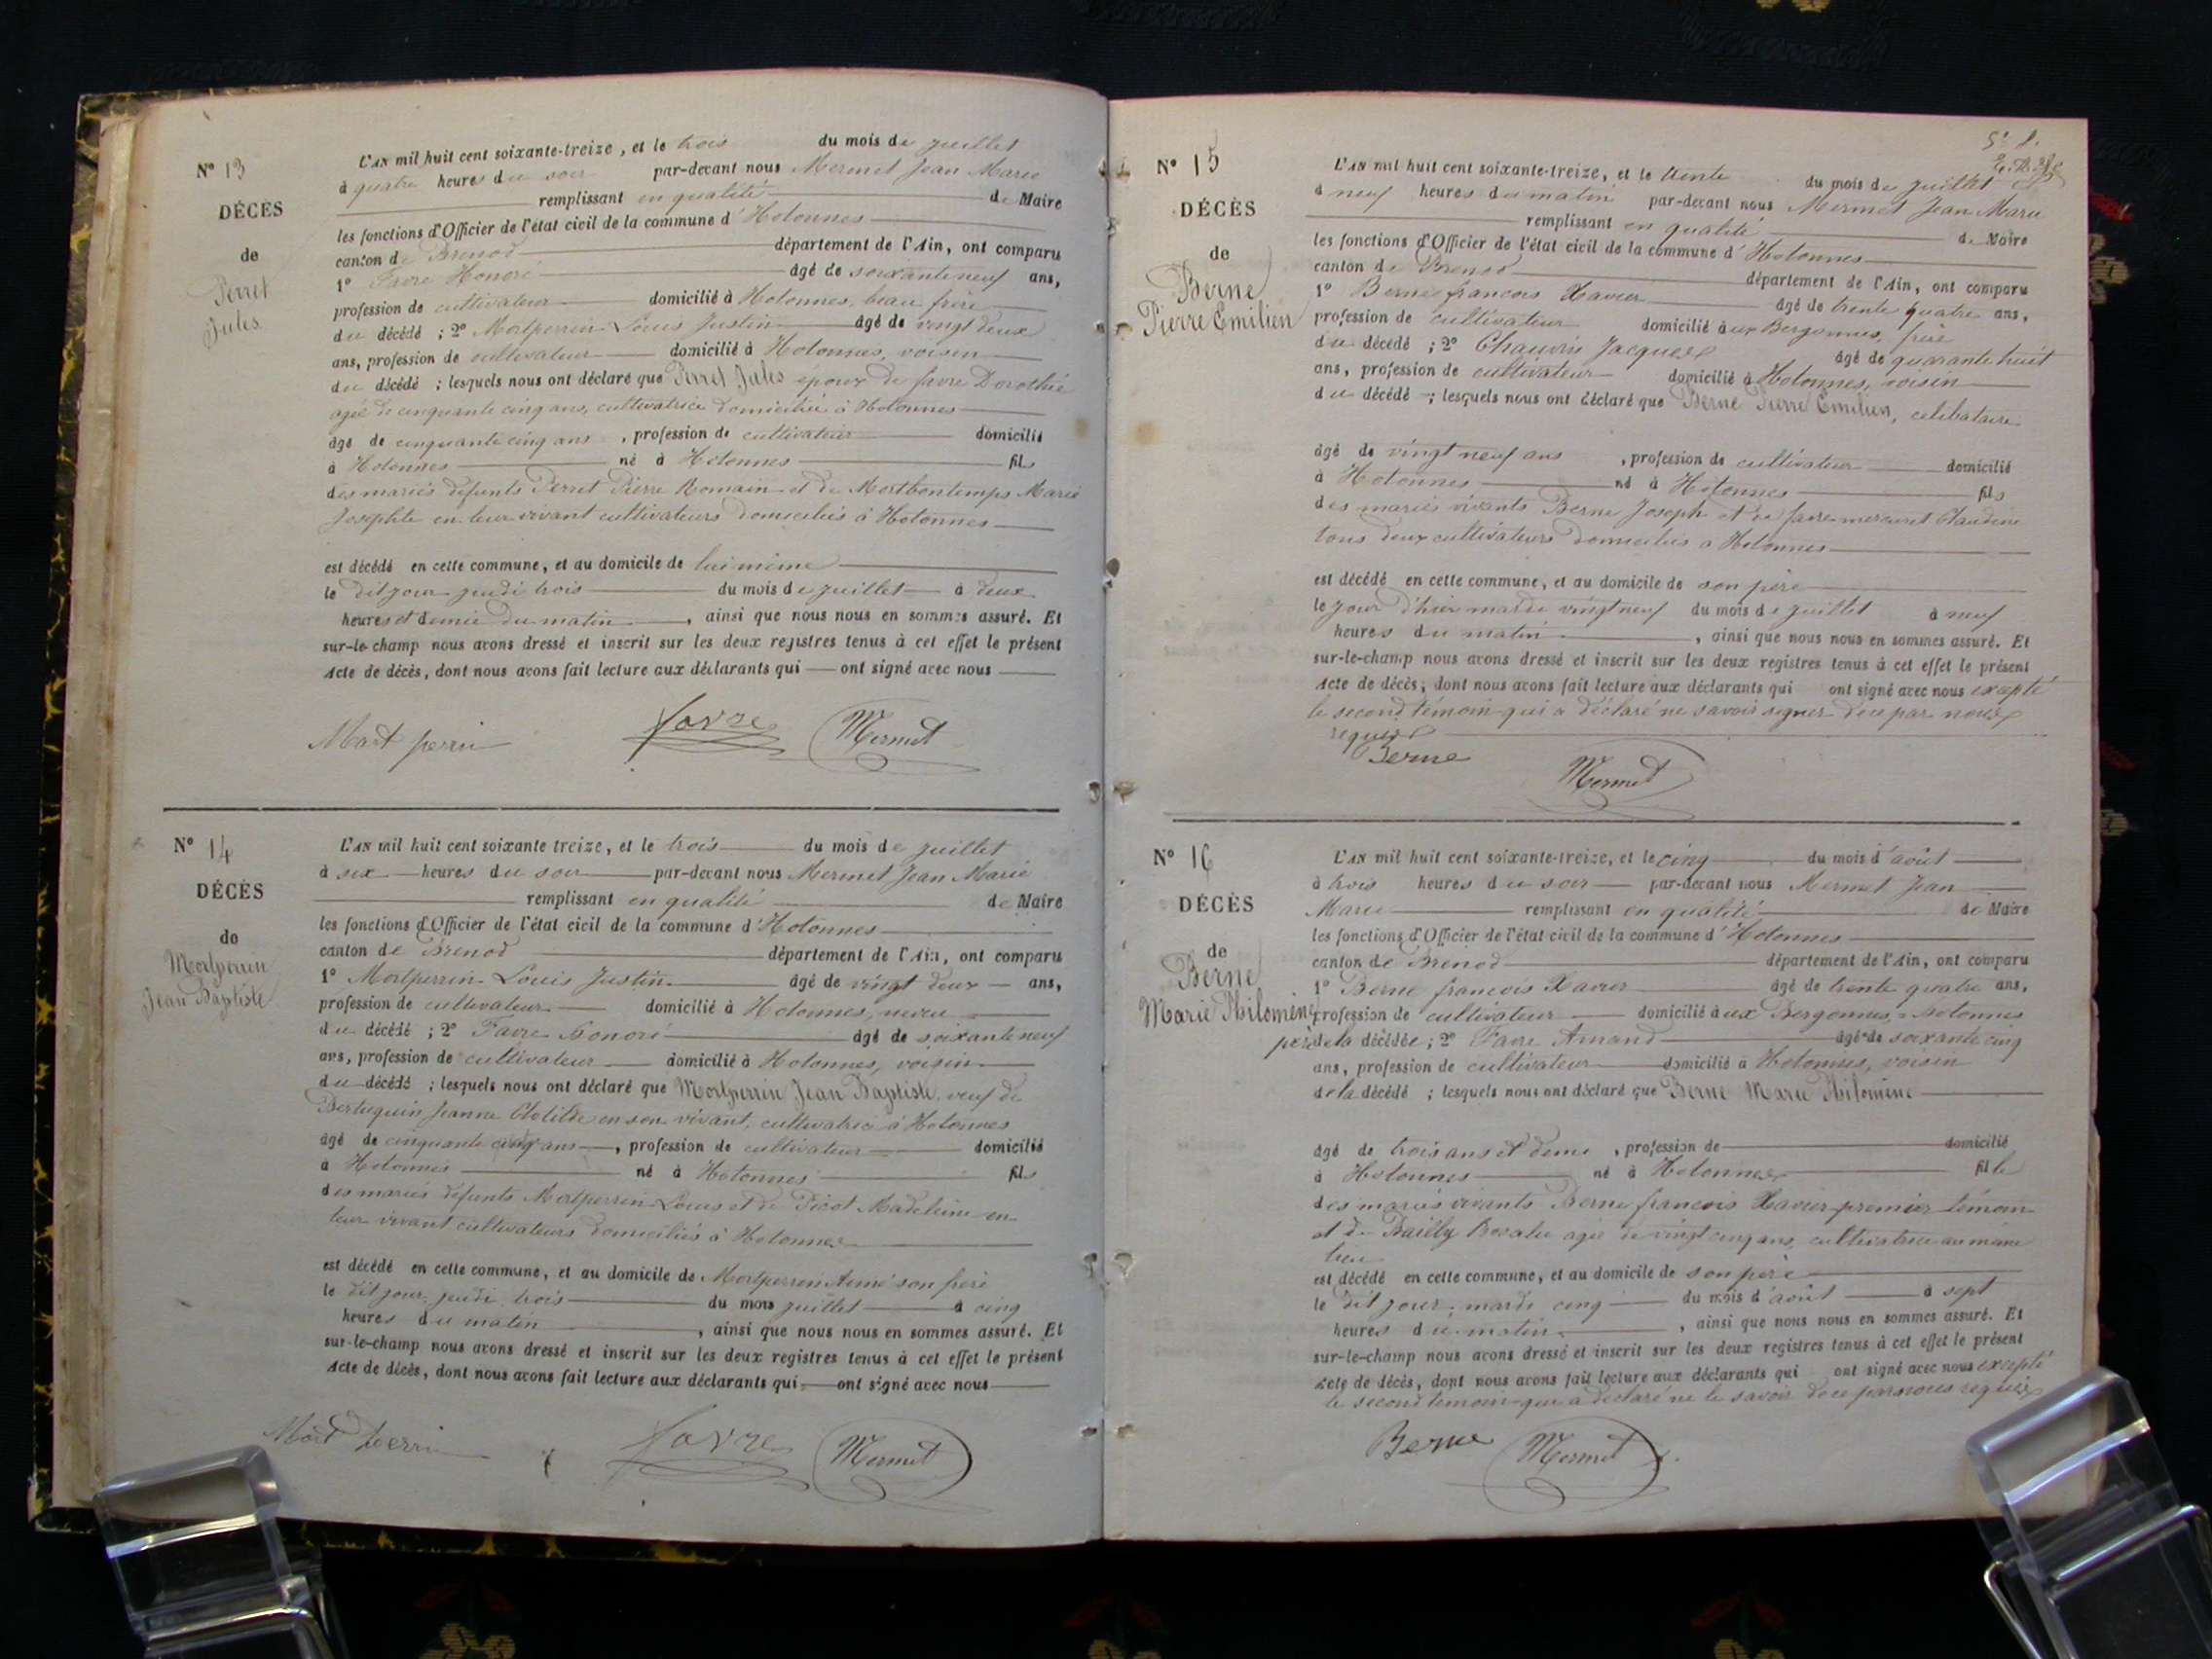 N° 13
DÉCÈS
de
Perret
Jules
L'AN mil huit cent soixante-treize, et le trois du mois de juillet
à quatre heures du soir par-devant nous Mermet Jean Marie
remplissant en qualité de Maire
les fonctions d'Officier de l'état civil de la commune d'Hotonnes
canton de Brenod département de l'Ain, ont comparu
1° Favre Honoré âgé de soixante neuf ans,
profession de cultivateur domicilié à Hotonnes, beau frère
du décédé ; 2° Mortperrin Louis Justin âgé de vingt deux
ans, profession de cultivateur domicilié à Hotonnes, voisin
du décédé ; lesquels nous ont déclaré que Perret Jules époux de favre Dorothée
agée de cinquante cinq ans, cultivatrice domiciliée à Hotonnes
âgé de cinquante cinq ans, profession de cultivateur domicilié
à Hotonnes né à Hotonnes fils
des mariés défunts Perret Pierre Romain et de Mortbontemps Marie
Josephte en leur vivant cultivateurs domiciliés à Hotonnes
est décédé en cette commune, et au domicile de lui même
le dit jour jeudi trois du mois de juillet à deux
heures et demie du matin, ainsi que nous nous en sommes assuré. Et
sur-le-champ nous avons dressé et inscrit sur les deux registres tenus à cet effet le présent
Acte de décès, dont nous avons fait lecture aux déclarants qui ont signé avec nous
Mort perrin favre Mermet
N° 14
DÉCÈS
de
Mortperrin
Jean Baptiste
L'AN mil huit cent soixante treize, et le trois du mois de juillet
à six heures du soir par-devant nous Mermet Jean Marie
remplissant en qualité de Maire
les fonctions d'Officier de l'état civil de la commune d'Hotonnes
canton de Brenod département de l'Ain, ont comparu
1° Mortperrin Louis Justin âgé de vingt deux ans,
profession de cultivateur domicilié à Hotonnes, neveu
du décédé ; 2° Favre Honoré âgé de soixante neuf
ans, profession de cultivateur domicilié à Hotonnes, voisin
du décédé ; lesquels nous ont déclaré que Mortperrin Jean Baptiste, veuf de
Jeanne Clotilde en son vivant, cultivatrice à Hotonnes
âgé de cinquante cinq ans, profession de cultivateur domicilié
à Hotonnes né à Hotonnes fils
des mariés défunts Mortperrin Louis et de Picot Madeleine en
leur vivant cultivateurs domiciliés à Hotonnes
est décédé en cette commune, et au domicile de Mortperrin Aimé son frère
le dit jour, jeudi trois du mois juillet à cinq
heures du matin, ainsi que nous nous en sommes assuré. Et
sur-le-champ nous avons dressé et inscrit sur les deux registres tenus à cet effet le présent
Acte de décès, dont nous avons fait lecture aux déclarants qui ont signé avec nous
Mort perrin favre Mermet
N° 15
DÉCÈS
de
Berne
Pierre Emilien
L'AN mil huit cent soixante-treize, et le trente du mois de juillet
à neuf heures du matin par-devant nous Mermet Jean Marie
remplissant en qualité de Maire
les fonctions d'Officier de l'état civil de la commune d'Hotonnes
canton de Brenod département de l'Ain, ont comparu
1° Berne françois Xavier âgé de trente quatre ans,
profession de cultivateur domicilié aux Bergonnes, frère
du décédé ; 2° Chauvin Jacques âgé de quarante huit
ans, profession de cultivateur domicilié à Hotonnes, voisin
du décédé ; lesquels nous ont déclaré que Berne Pierre Emilien, célibataire
âgé de vingt neuf ans, profession de cultivateur domicilié
à Hotonnes né à Hotonnes fils
des mariés vivants Berne Joseph et de favre Claudine
tous deux cultivateurs domiciliés à Hotonnes
est décédé en cette commune, et au domicile de son père
le jour d'hier mardi vingt neuf du mois de juillet à neuf
heures du matin, ainsi que nous nous en sommes assuré. Et
sur-le-champ nous avons dressé et inscrit sur les deux registres tenus à cet effet le présent
Acte de décès, dont nous avons fait lecture aux déclarants qui ont signé avec nous excepté
le second témoin qui a déclaré ne savoir signer de ce par nous
requis
Berne Mermet
N° 16
DÉCÈS
de
Berne
Marie Philomène
L'AN mil huit cent soixante-treize, et le cinq du mois d'août
à trois heures du soir par-devant nous Mermet Jean
Marie remplissant en qualité de Maire
les fonctions d'Officier de l'état civil de la commune d'Hotonnes
canton de Brenod département de l'Ain, ont comparu
1° Berne françois Xavier âgé de trente quatre ans,
profession de cultivateur domicilié aux Bergonnes, Hotonnes
père de la décédée ; 2° Favre Armand âgé de soixante cinq
ans, profession de cultivateur domicilié à Hotonnes, voisin
de la décédé ; lesquels nous ont déclaré que Berne Marie Philomène
âgé de trois ans et demi, profession de domicilié
à Hotonnes né à Hotonnes fille
des mariés vivants Berne françois Xavier premier témoin
et de Bailly Rosalie agée de vingt cinq ans, cultivatrice au même
lieu
est décédé en cette commune, et au domicile de son père
le dit jour, mardi cinq du mois d'août à sept
heures du matin, ainsi que nous nous en sommes assuré. Et
sur-le-champ nous avons dressé et inscrit sur les deux registres tenus à cet effet le présent
Acte de décès, dont nous avons fait lecture aux déclarants qui ont signé avec nous excepté
le second témoin qui a déclaré ne le savoir de ce par nous requis
Berne Mermet